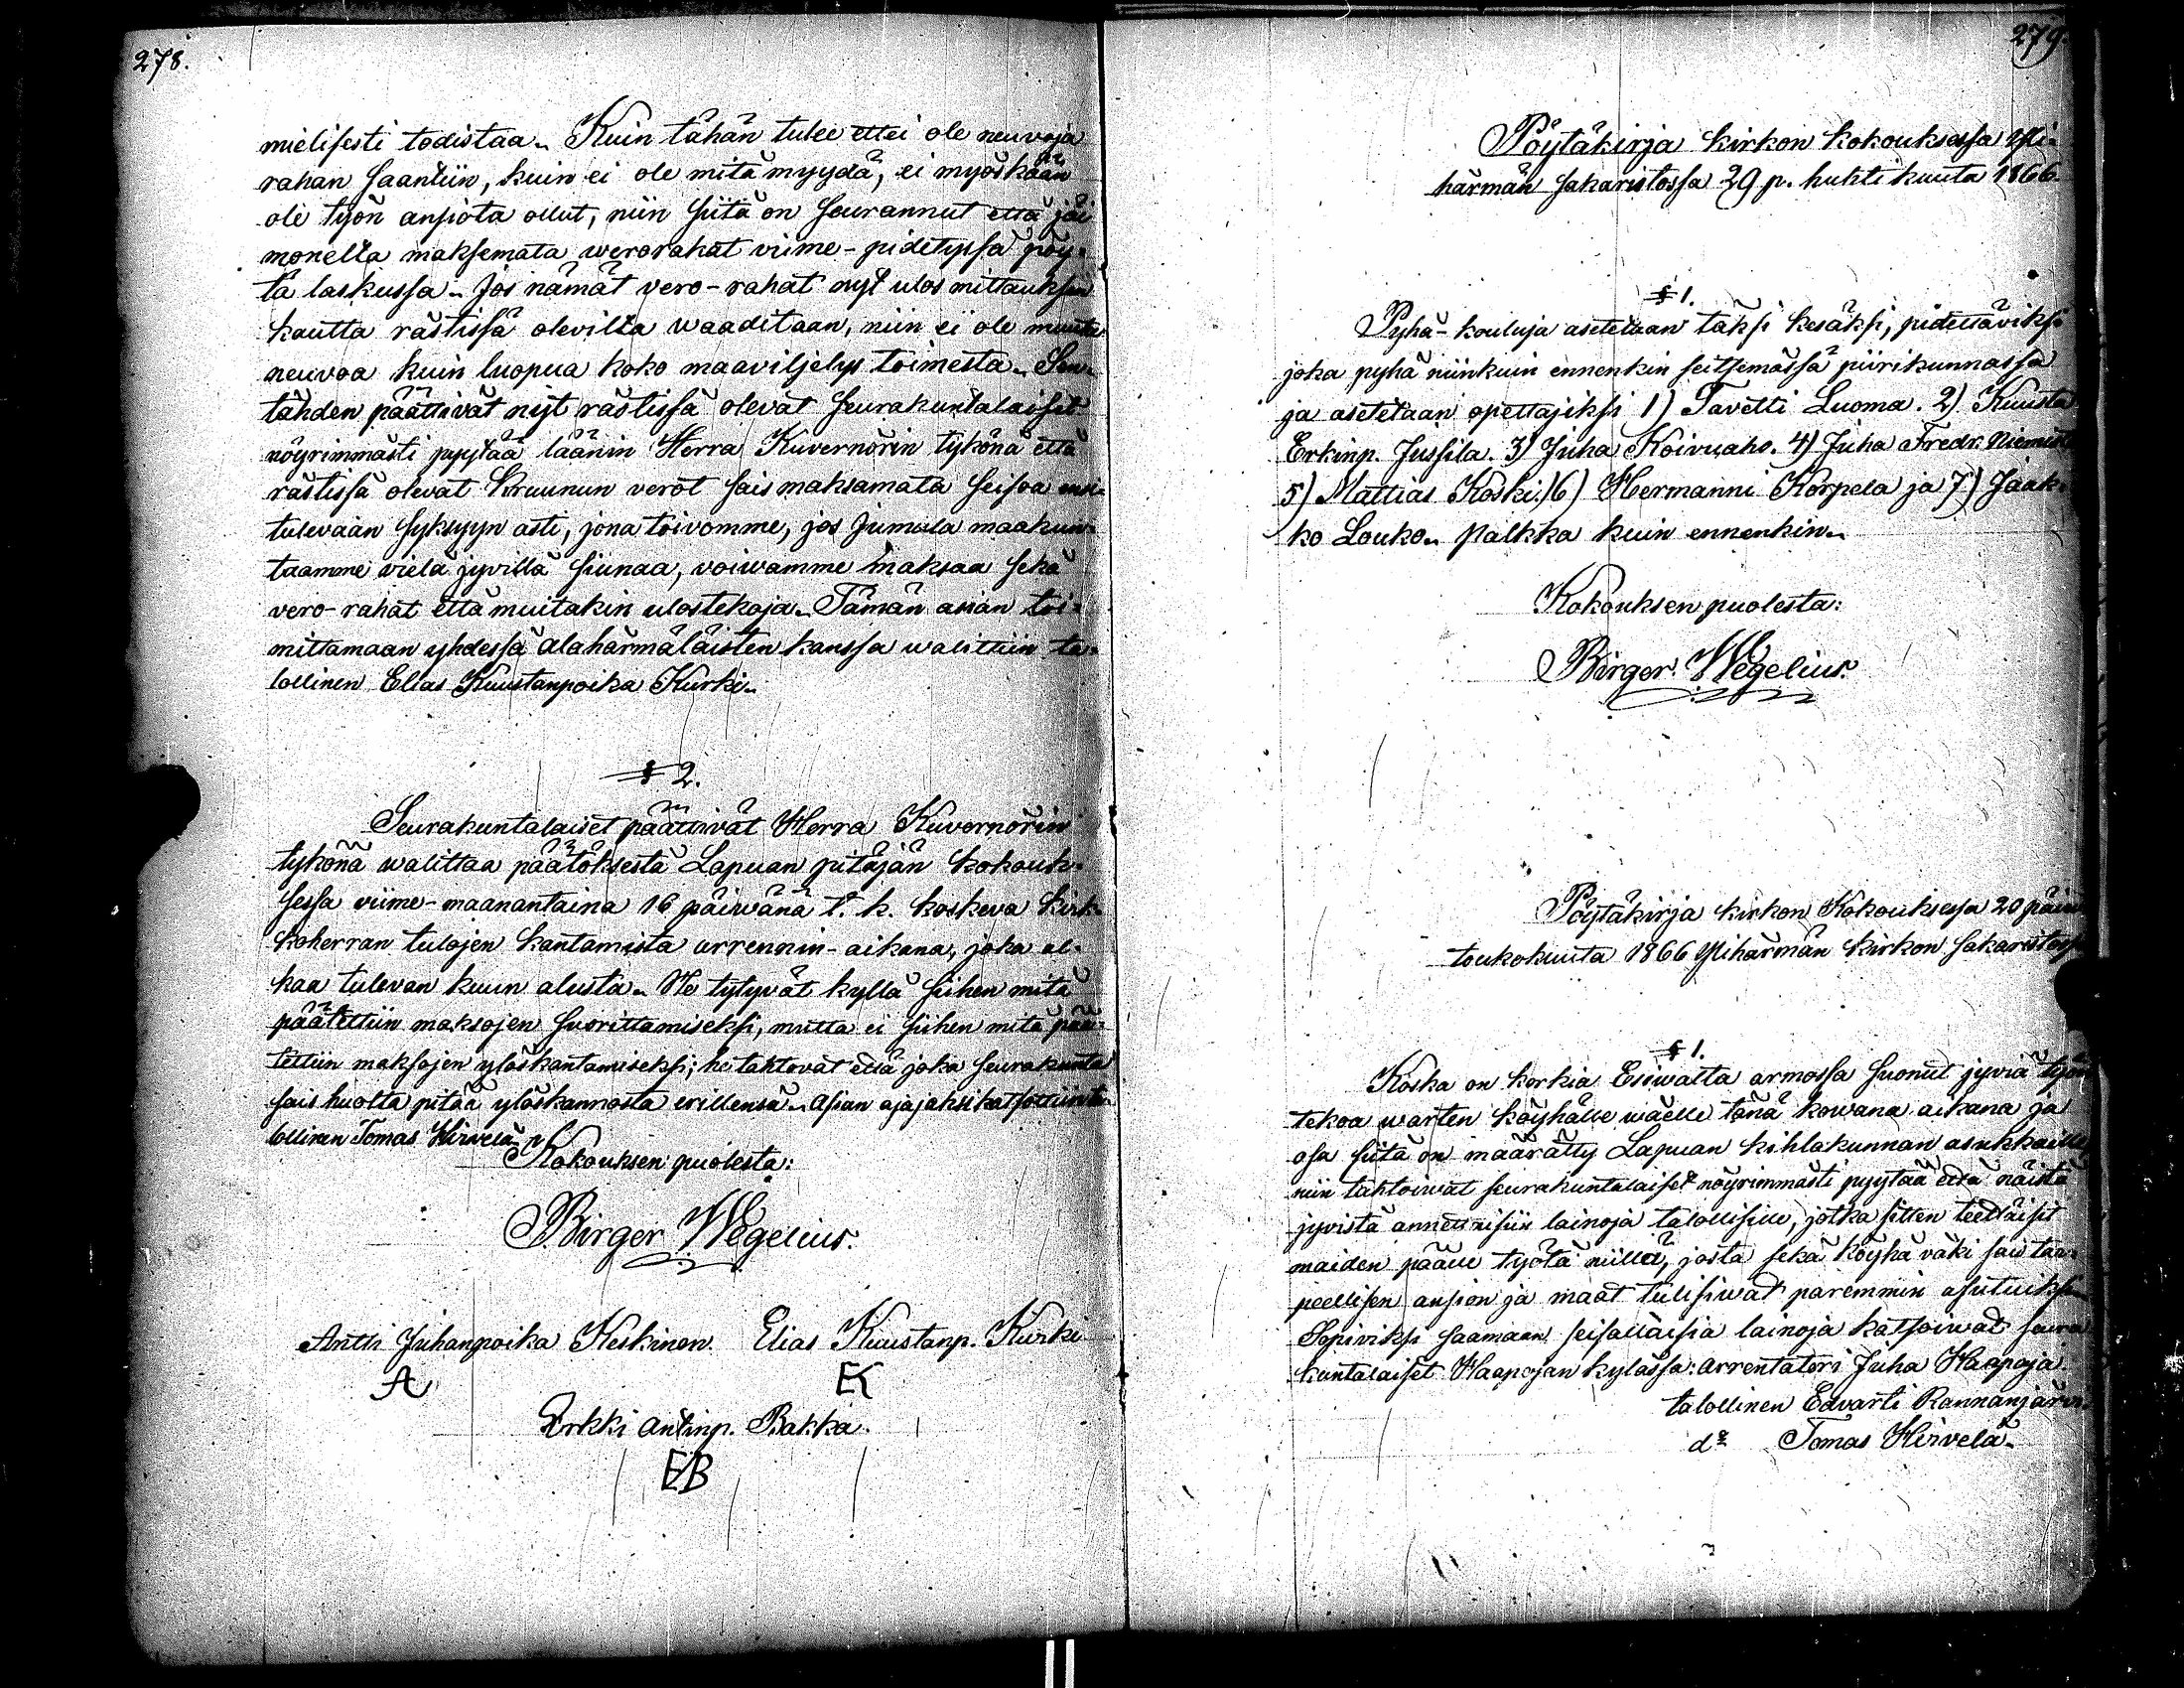 278.
mielisesti todistaa. Kuin tähän tulee ettei ole neuvoja
rahan saantiin, kuin ei ole mitä myydä, ei myöskään
ole työn ansiota ollut, niin siitä on seurannut että jäi
monelta maksemata werorahat viime-pidetyssä pöy-
tä laskussa. Jos nämät vero-rahat nyt ulos mittauksen
kautta rästissä olevilta waaditaan, niin ei ole muuta
neuvoa kuin luopua koko maaviljelys toimesta. Sen-
tähden päättivät nyt rästissä olevat seurakuntalaiset
nöyrimmästi pyytää läänin Herra Kuvernörin tykönä että
rästissä olevat Kruunun verot sais maksamata seisoa ensi
tulevaan syksyyn asti, jona toivomme, jos Jumala maakun-
taamme vielä jyvillä siunaa, voivamme maksaa sekä
vero-rahat että muitakin ulostekoja. Tämän asian toi-
mittamaan yhdessä alahärmäläisten kanssa walittiin ta-
lollinen Elias Kuustanpoika Kurki.
§ 2.
Seurakuntalaiset päättivät Herra Kuvernörin
tykönä walittaa päätöksestä Lapuan pitäjän kokouk-
sessa viime-maanantaina 16 päiwänä t. k. koskeva kirk-
koherran tulojen kantamista arrennin-aikana, joka al-
kaa tulevan kuun alusta. He tytyvät kyllä siihen mitä
päätettiin maksojen suorittamiseksi, mutta ei siihen mitä pää-
tettiin maksojen ylöskantamiseksi; he tahtovat että joka seurakunta
sais huolta pitää ylöskannosta erillensä. Asian ajajaksi katsottiin ta-
lollinen Tomas Hirvelä.
Kokouksen puolesta:
Birger Wegelius.
Antti Juhanpoika Keskinen. Elias Kuustanp. Kurki
A EK
Erkki Antinp. Bakka.
EB
279.
Pöytäkirja kirkon kokouksessa Yli-
härmän sakaristossa 29 p. huhtikuuta 1866.
§ 1.
Pyhä-kouluja asetetaan täksi kesäksi, pidettäviksi
joka pyhä niinkuin ennenkin seitsemässä piirikunnassa
ja asetetaan opettajiksi 1) Tavetti Luoma. 2) Kuusta
Erkinp. Jussila. 3) Juha Koivuaho. 4) Juha Fredr. Niemistö
5) Mattias Koski. 6) Hermanni Korpela ja 7) Jaak-
ko Louko. Palkka kuin ennenkin.
Kokouksen puolesta:
Birger Wegelius.
Pöytäkirja kirkon Kokouksessa 20 päivä
toukokuuta 1866 Ylihärmän kirkon sakaristossa
§ 1.
Koska on korkia Esiwalta armossa suonut jyviä työn
tekoa warten köyhälle wäelle tänä kowana aikana ja
osa siitä on määrätty Lapuan kihlakunnan asukkaille,
niin tahtoiwat seurakuntalaiset nöyrimmästi pyytää että näistä
jyvistä annettaisiin lainoja talollisille, jotka sitten teettäisit
maiden päälle työtä niillä, josta sekä köyhä väki sais tar-
peellisen ansion ja maat tulisiwat paremmin asutuiksi.
Sopiviksi saamaan seisallaisia lainoja katsoiwat seura
kuntalaiset Haapojan kylässä: arrentatori Juha Haapoja
talollinen Edvarti Rannanjärvi.
do Tomas Hirvelä.